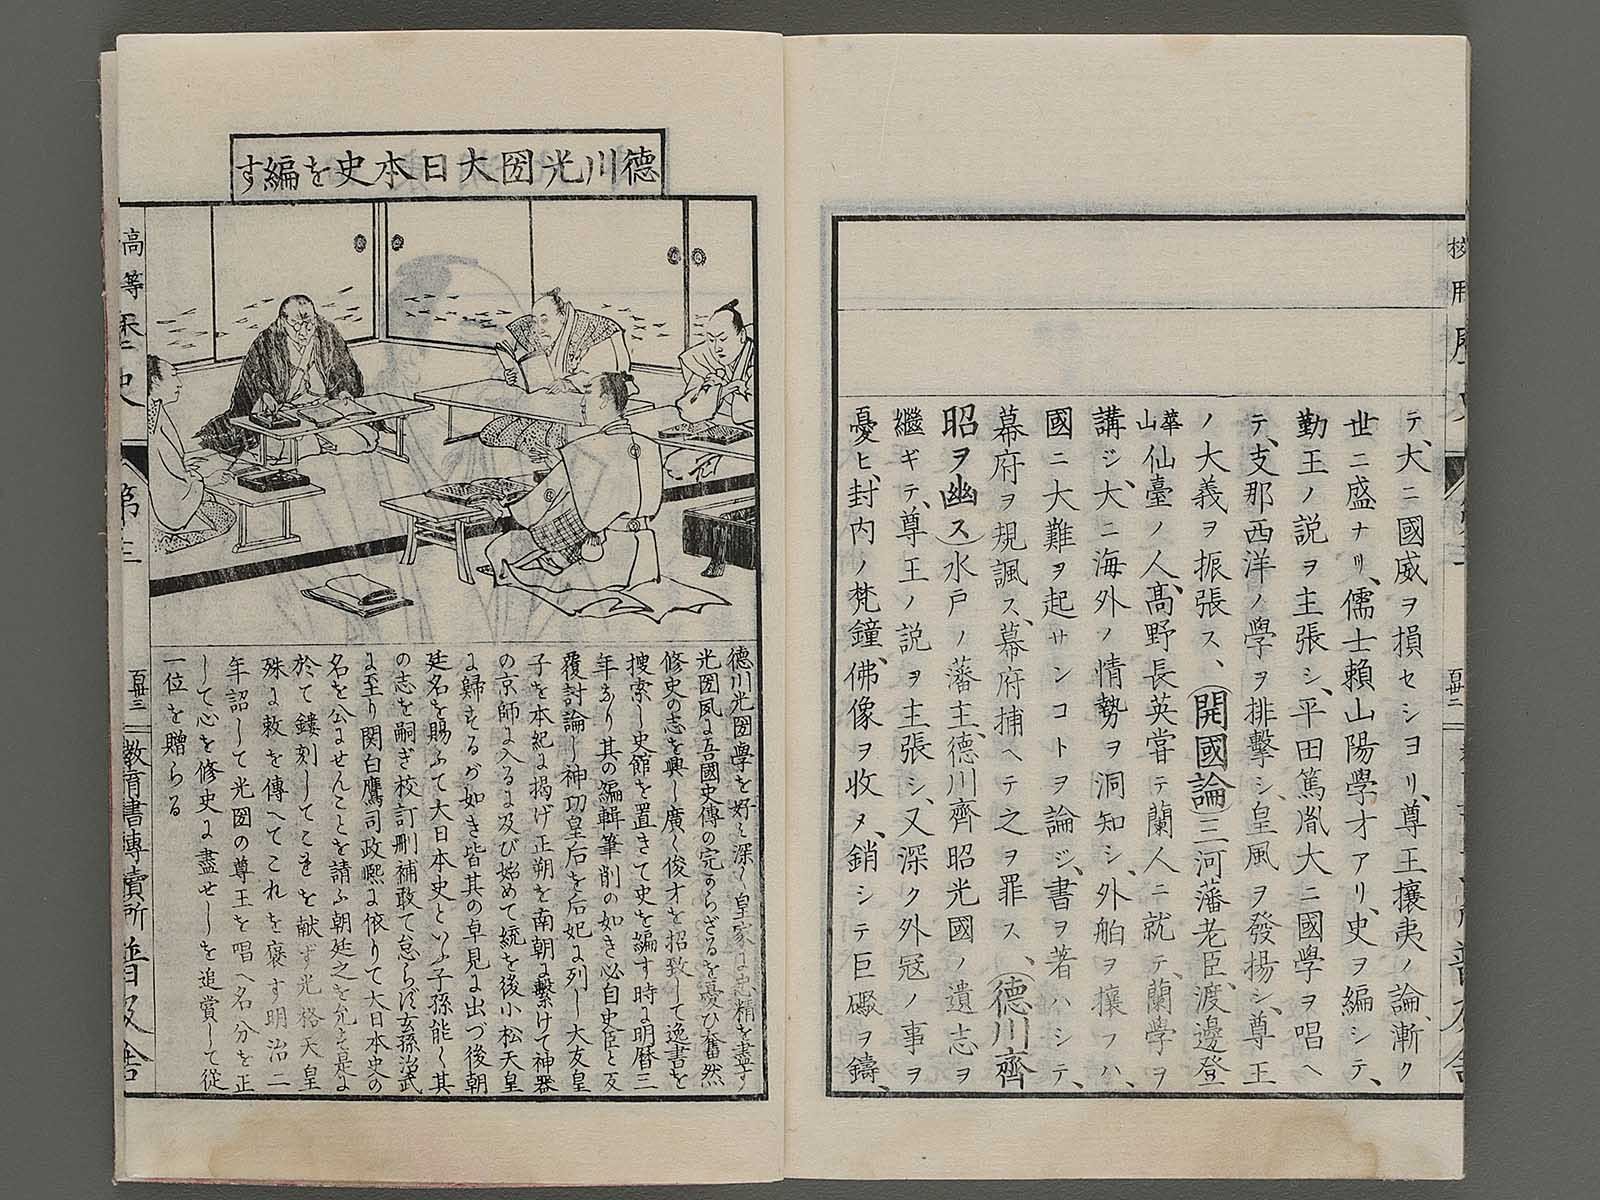 テ、大ニ國威ヲ損セシヨリ、尊王攘夷ノ論、漸ク
世ニ盛ナリ、儒士賴山陽學才アリ、史ヲ編シテ、
勤王ノ説ヲ主張シ、平田篤胤大ニ國學ヲ唱ヘ
テ、支那西洋ノ學ヲ排擊シ、皇風ヲ發揚シ、尊王
ノ大義ヲ振張ス、(開國論)三河藩老臣、渡邊登
華山仙臺ノ人、髙野長英嘗テ蘭人ニ就テ、蘭學ヲ
講ジ、大ニ海外ノ情勢ヲ洞知シ、外舶ヲ攘フハ、
國ニ大難ヲ起サンコトヲ論ジ、書ヲ著ハシテ、
幕府ヲ規諷ス、幕府捕ヘテ之ヲ罪ス、(德川齊
昭ヲ幽ス)水戸ノ藩主、德川齊昭光國ノ遺志ヲ
繼ギテ、尊王ノ説ヲ主張シ、又深ク外冦ノ事ヲ
憂ヒ、封内ノ梵鐘、佛像ヲ收メ、銷シテ巨礮ヲ鑄、
德川光圀大日本史を編す
德川光圀學を好み深く皇家に忠精を盡す
光圀夙に吾國史傳の完からざるを憂ひ奮然
修史の志を興し廣く俊才を招致して逸書を
捜索し史館を置きて史を編す時に明暦三
年なり其の編輯筆削の如き必自史臣と反
覆討論し神功皇后を后妃に列し大友皇
子を本紀に揭げ正朔を南朝に繫けて神器
の京師に入るに及び始めて統を後小松天皇
に歸するが如き皆其の卓見に出づ後朝
廷名を賜ふて大日本史といふ子孫能く其
の志を嗣ぎ校訂刪補敢て怠らず玄孫治武
に至り関白鷹司政熙に依りて大日本史の
名を公にせんことを請ふ朝廷之を允す是に
於て鏤刻してこれを献ず光格天皇
殊に敕を傳へてこれを褒す明治二
年詔して光圀の尊王を唱へ名分を正
して心を修史に盡せしを追賞して從
一位を贈らる
高等歴史
第三
百卅三
教育書專賣所
普及舍